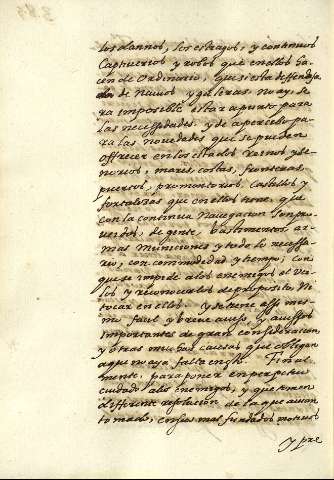 los dannos, los estragos, y continuos
Captiuerios y robos que en ellos ha-
cen de Ordinario, que si esta deffendida
de Nauios y galeras no ay, se-
ra imposible estar a punto para
las necessidades, y de apercebo pa-
ra las nouedades que se pueden
offrecer en los estados Reinos y Se-
norios, mares, costas, fronteras
puertos, promontorios, Castillos y
fortalezas que en ellos tiene, que
con la continua Nauegacion son pro-
ueidos, de gente, bastimentos ar-
mas Municiones y todo lo necessa-
rio, con commodidad y tiempo, con
que se impide a los enemigos el ver-
los y reconocerlos de proposito, Ni
tocar en ellos y se tiene assi mes-
mo facil y breue auiso, y auissos
importantes de gran consideracion
y otras muchas causas que obligan
a que no aya falta en ello. Final-
mente, para poner en perpetuo
cuidado a los enemigos, y que tomen
differente resolucion de la que auian
tomado, con sus mas fundados motiuos
y pre